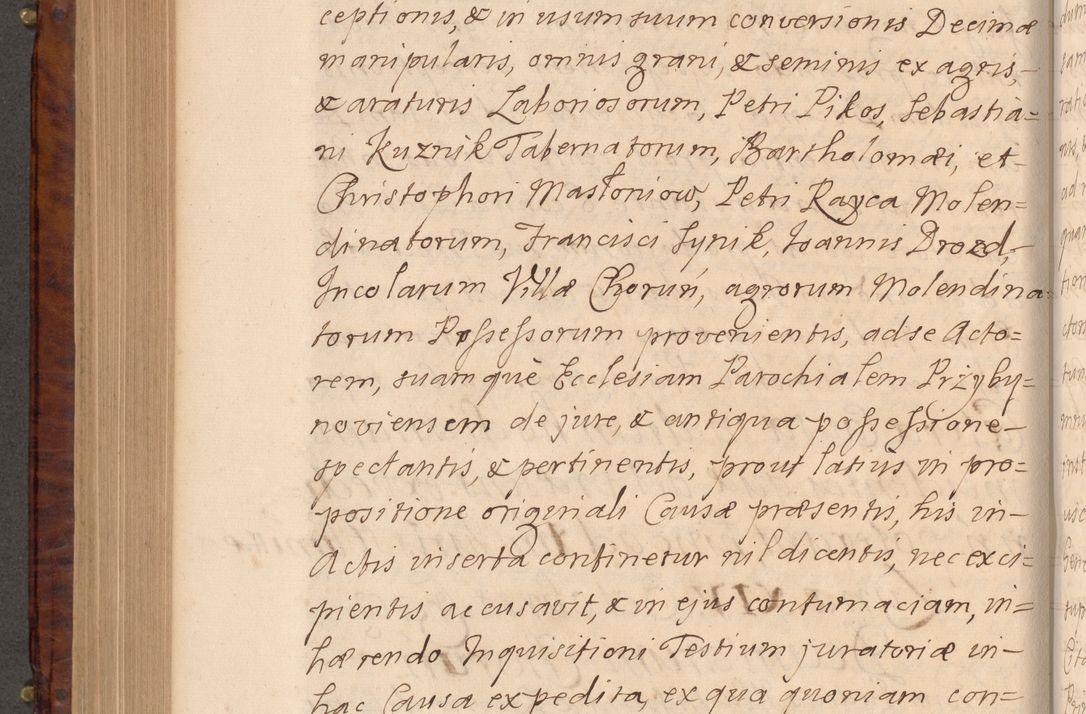 ceptionis, & in usum suum conversionis Decimæ
manipularis, omnis grani, & seminis ex agris,
& araturis Laboriosorum, Petri Pikos, Sebastia=
ni Kuznik Tabernatorum, Bartholomæi, et
Christophori Masłoniow, Petri Rayca Molen=
dinatorum, Francisci Synik, Ioannis Drozd,
Incolarum Villæ Choruń, agrorum Molendina=
torum Possessorum provenientis, ad se Acto=
rem, suamquè Ecclesiam Parochialem Przyby=
noviensem de jure, & antiqua possessione
spectantis, & pertinentis, prout latius in pro=
positione originali Causæ præsentis, his in
Actis inserta continetur nil dicentis, nec exci=
pientis, accusavit, & in ejus contumaciam, in=
hærendo Inquisitioni Testium juratoriæ in
hac Causa expedita, ex qua quoniam con=